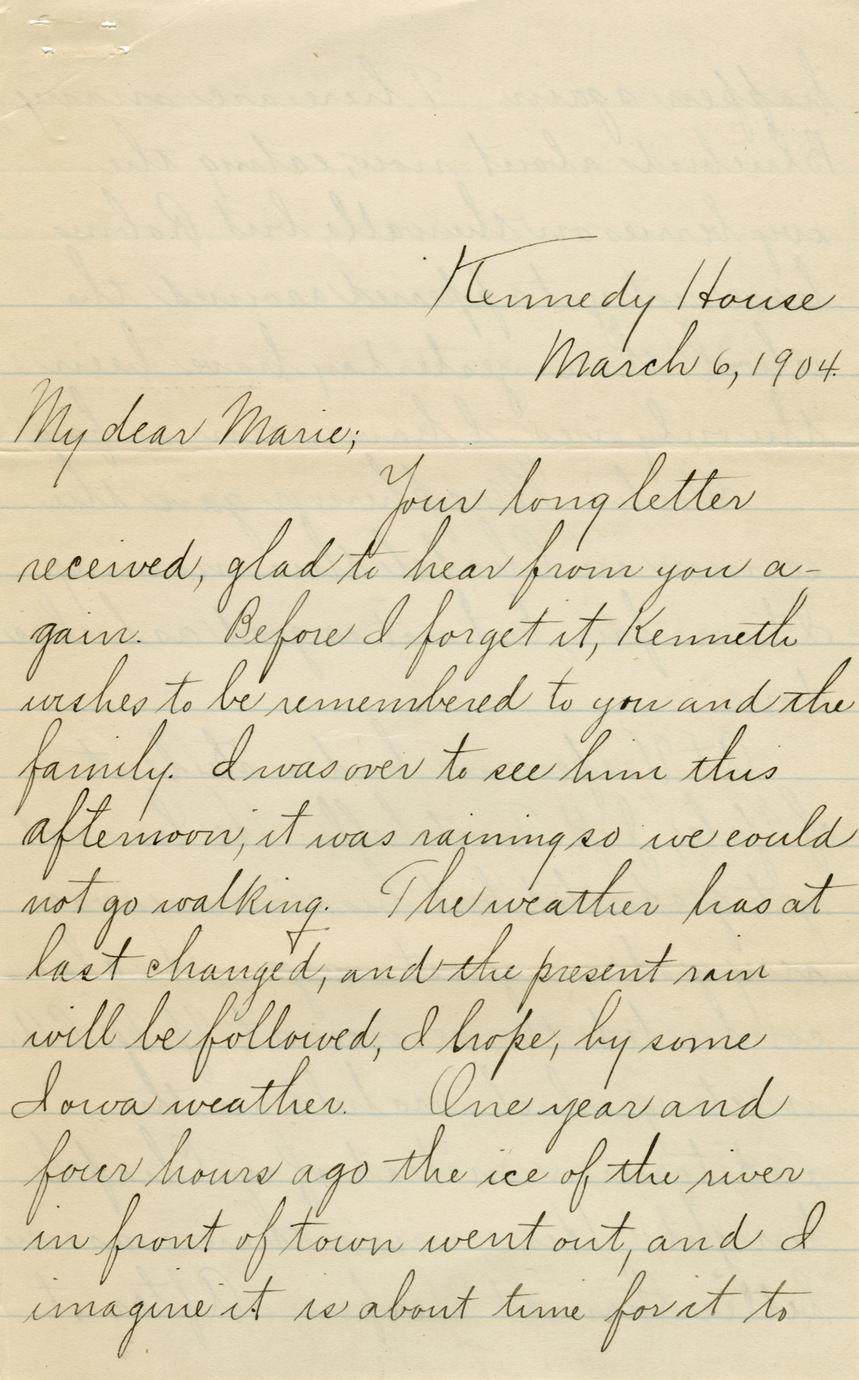 Kennedy House
March 6, 1904.
My dear Marie;
Your long letter
received, glad to hear from you a-
gain. Before I forget it, Kenneth
wishes to be remembered to you and the
family. I was over to see him this
afternoon; it was raining so we could
not go walking. The weather has at
last changed, and the present rain
will be followed, I hope, by some
Iowa weather. One year and
four hours ago the ice of the river
in front of town went out, and I
imagine it is about time for it to